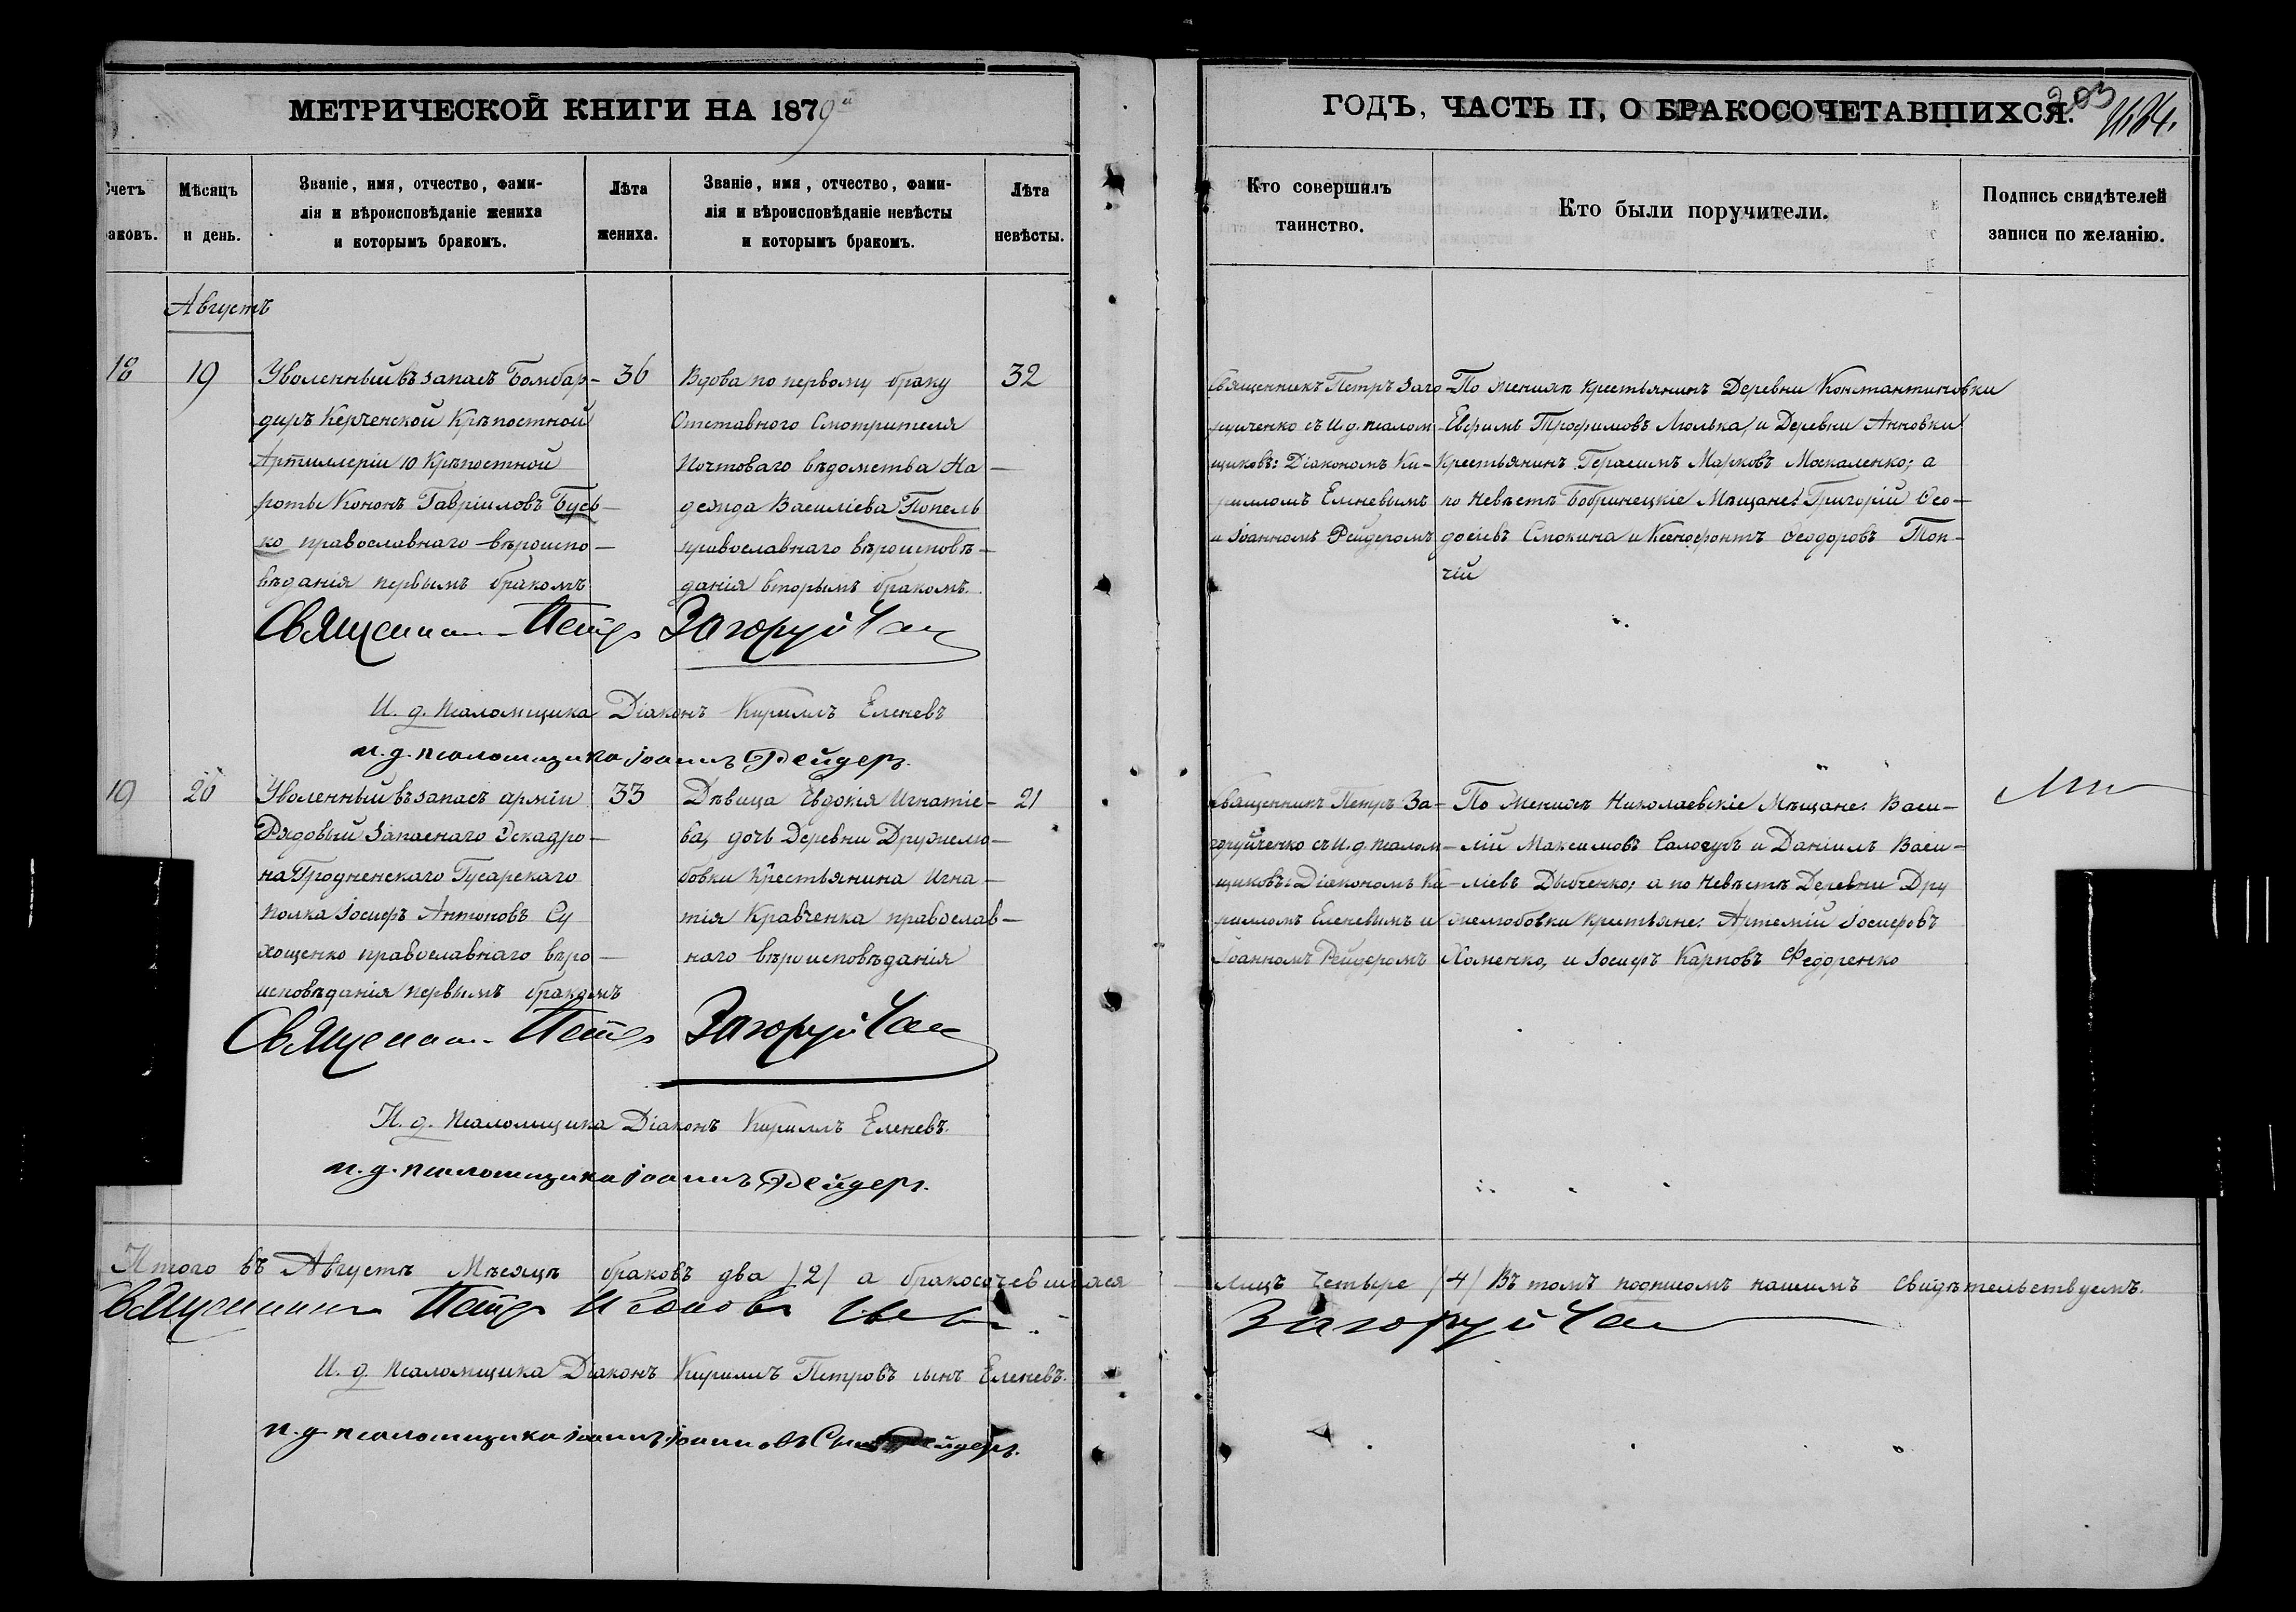 МЕТРИЧЕСКОЙ КНИГИ НА 1879й
ГОДЪ, ЧАСТЬ II, О БРАКОСОЧЕТАВШИХСЯ.
203
Счетъ
раковъ.
Мѣсяцъ
и день.
Званіе, имя, отчество, фами-
лія и вѣроисповѣданіе жениха
и которымъ бракомъ.
Лѣта
жениха.
Званіе, имя, отчество, фами-
лія и вѣроисповѣданіе невѣсты
и которымъ бракомъ.
Лѣта
невѣсты.
Кто совершилъ
таинство.
Кто были поручители.
Подпись свидѣтелей
записи по желанію.
Августъ
18
19
Уволенный въ запасъ Бомбар-
диръ Керченской Крѣпостной
Артиллеріи 10 Крѣпостной
роты Кононъ Гавріиловъ Бусь-
ко православнаго вѣроиспо-
вѣданія первымъ бракомъ
36
Вдова по первому браку
Отставного Смотрителя
Почтоваго вѣдомства На-
дежда Василіева Попель
православнаго вѣроисповѣ-
данія вторымъ бракомъ.
32
Священникъ Петръ Заго-
руйченко съ И. д. псалом-
щиковъ: Діакономъ Ки-
рилломъ Еленевымъ
и Іоанномъ Рейдеромъ
По Женихѣ Крестьянинъ Деревни Константиновки
Евфимъ Трофимовъ Люлька, и Деревни Анновки
Крестьянинъ Герасимъ Марковъ Москаленко; а
по Невѣстѣ Бобринецкіе Мѣщане: Григорій Ѳео-
досіевъ Смокина и Ксенофонтъ Ѳеодоровъ Топ-
чій
Священникъ Петръ Загоруйченко
И. д. Псаломщика Діаконъ Кириллъ Еленевъ
и. д. псаломщика Іоаннъ Рейдеръ.
19
26
Уволенный въ запасъ арміи
Рядовый Запаснаго Эскадро-
на Гродненскаго Гусарскаго
полка Іосифъ Антоновъ Су
хощенко православнаго вѣро-
исповѣданія первымъ бракомъ
33
Дѣвица Евдокія Игнатіе-
ва, дочь Деревни Дружелю-
бовки Крестьянина Игна-
тія Кравченка православ-
наго вѣроисповѣданія
21
Священникъ Петръ За-
горуйченко съ И. д. псалом-
щиковъ: Діакономъ Ки-
рилломъ Еленевымъ и
Іоанномъ Рейдеромъ
По Женихѣ Николаевскіе Мѣщане: Васи-
лій Максимовъ Салогубъ и Даніилъ Васи-
ліевъ Дыбченко; а по Невѣстѣ Деревни Дру
желюбовки Крестьяне: Артемій Іосифовъ
Хоменко, и Іосифъ Карповъ Федоренко
Священникъ Петръ Загоруйченко
И. д. Псаломщика Діаконъ Кириллъ Еленевъ.
и. д. псаломщика Іоаннъ Рейдеръ.
Итого въ Августѣ Мѣсяцѣ браковъ два /2/ а бракосочевшихся
лицъ четыре /4/ Въ томъ подписомъ нашимъ Свидѣтельствуемъ.
Священникъ Петръ
Загоруйченко
И. д. Псаломщика Діаконъ Кириллъ Петровъ сынъ Еленевъ.
и. д. псаломщика Іоаннъ Іоанновъ Сынъ Рейдеръ.